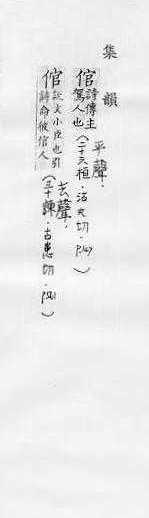 集韻
平聲.
倌 詩傳主
駕人也 (二十六桓.沽丸切.
去聲.
倌 說文小臣也引
詩命彼倌人 (三十諫.古患切.